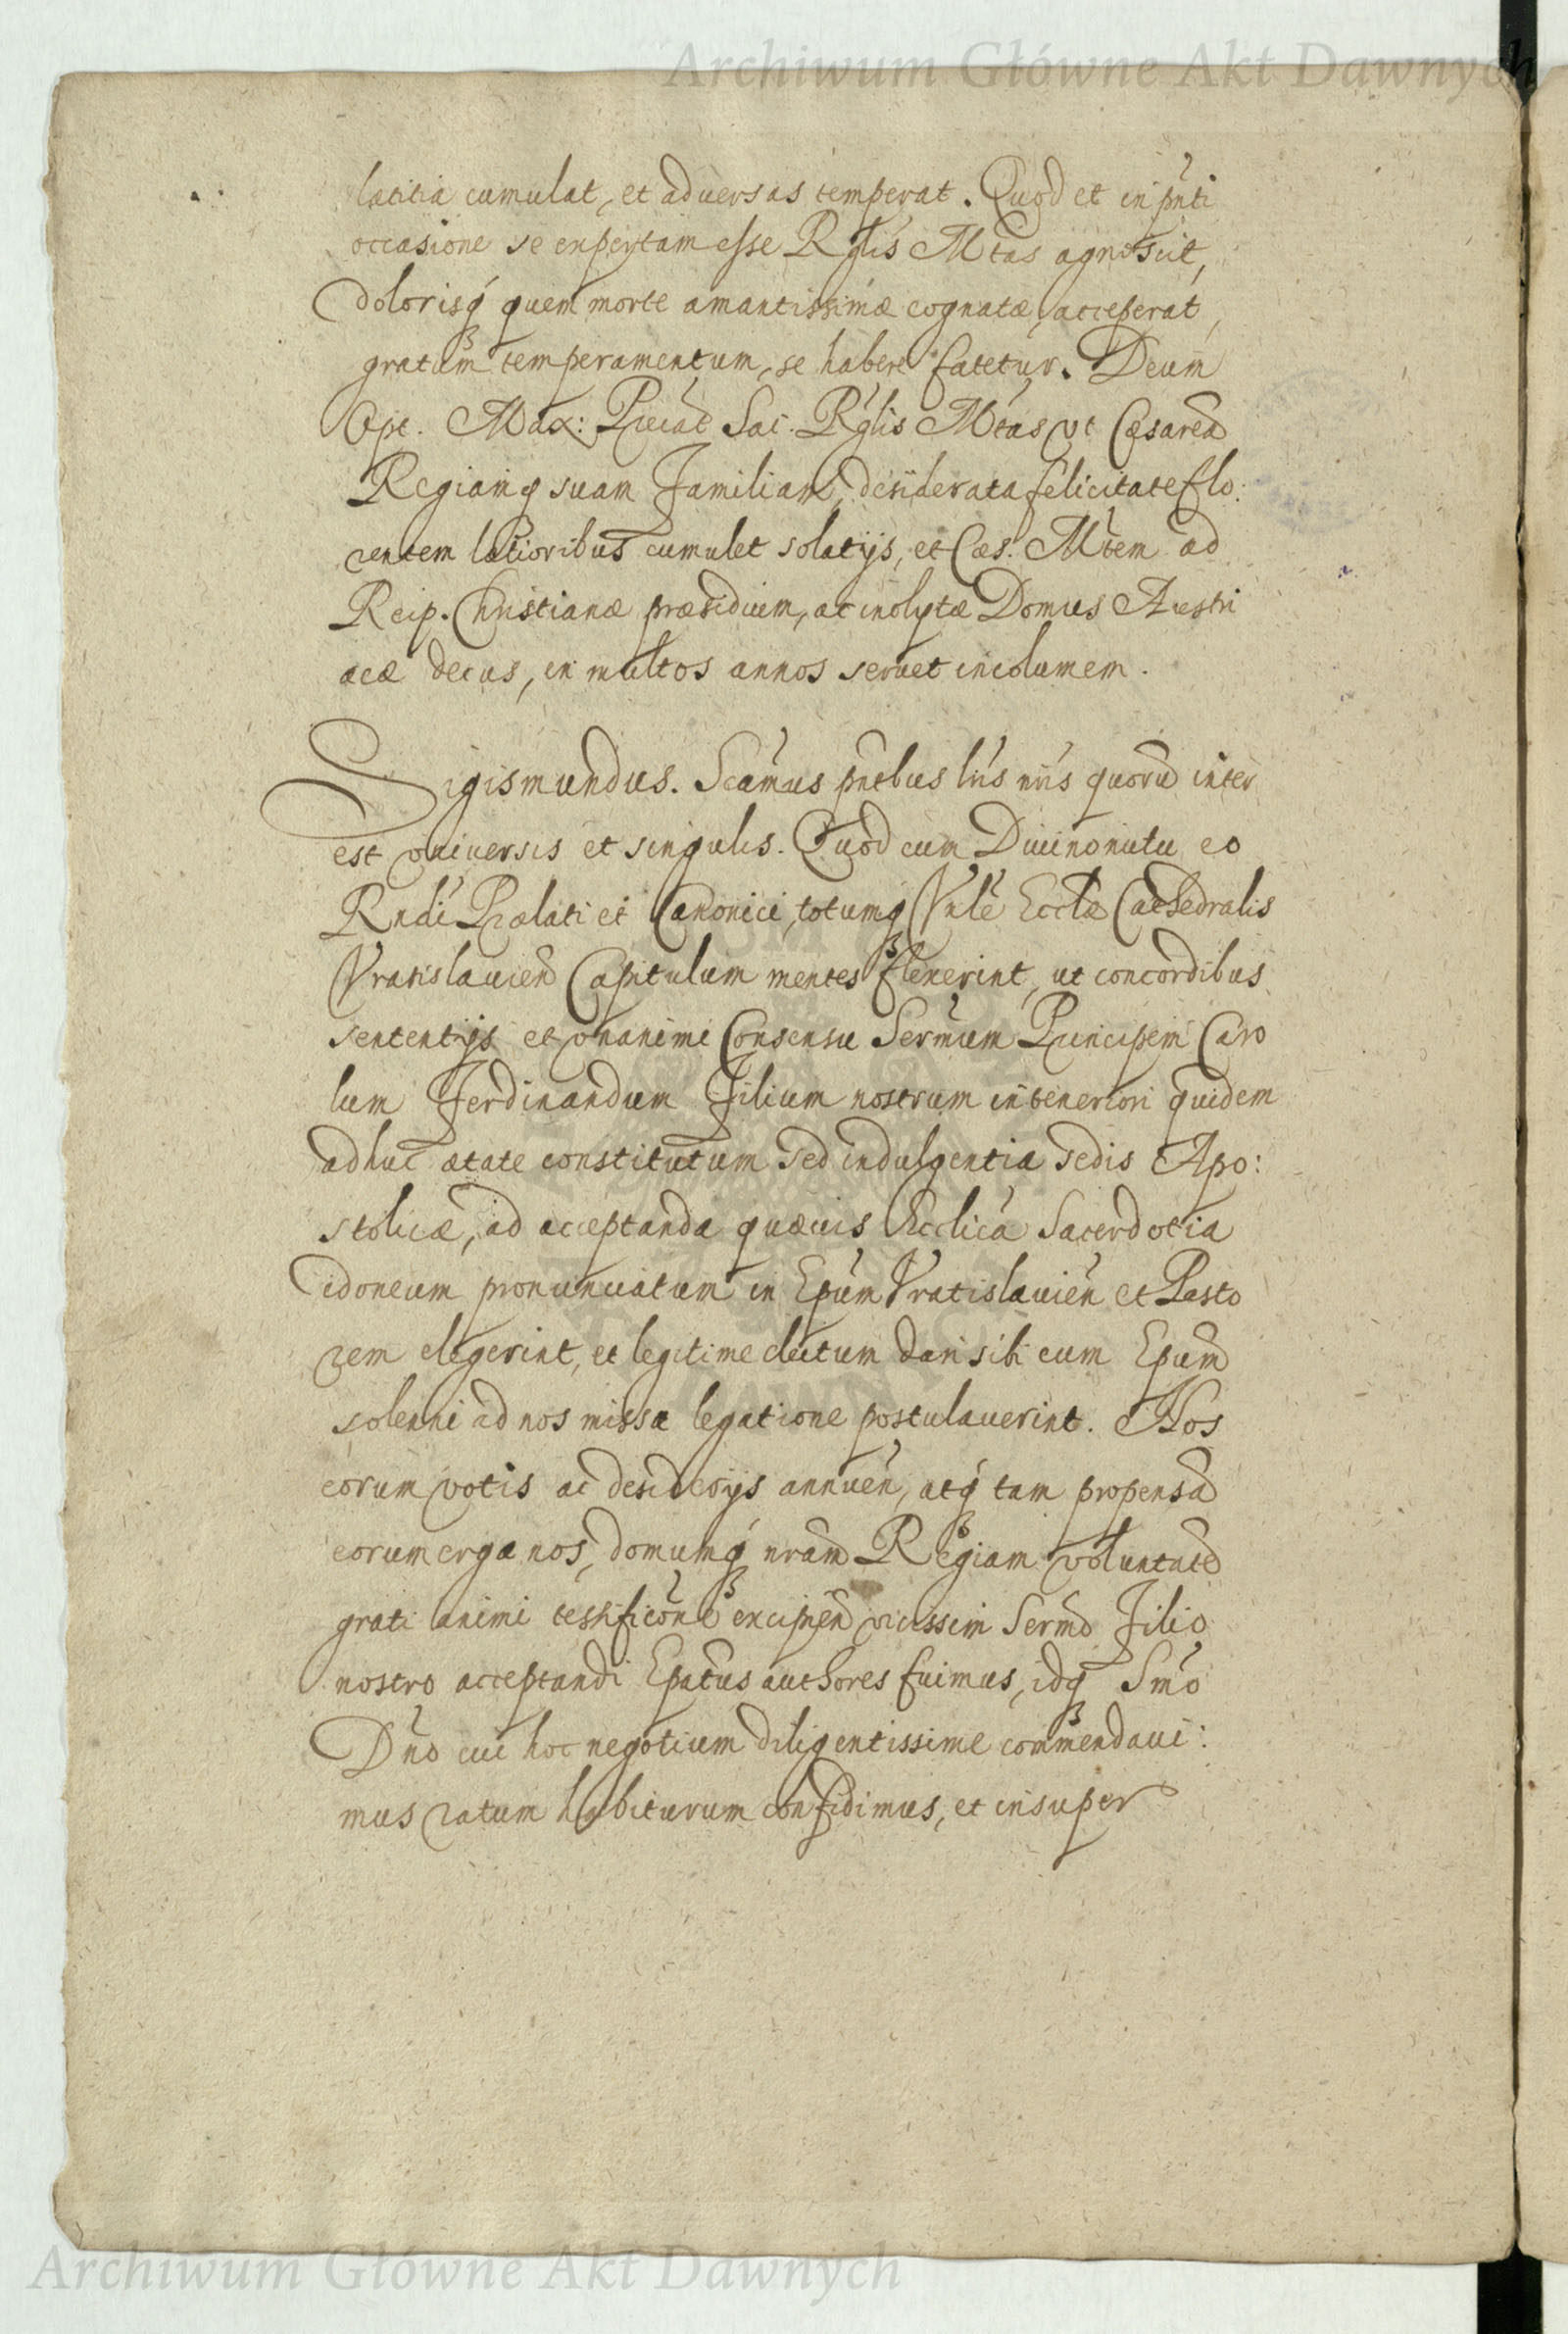 Archiwum Główne Akt Dawnych
lætitia cumulat, et aduersas temperat. Quod et in pñti
occasione se expertam esse Rgiis Mtas agnoscit,
dolorisq quem morte amantissimæ cognatæ acceperat,
gratum temperamentum se habere fatetur. Deum
Opt. Max: Precat Sac. Rgiis Mtas vt Cæsaream
Regiamq suam Familiam, desiderata felicitate flo:
rentem lætioribus cumulet solatijs, et Cæs. Mtem ad
Reip. Christianæ præsidium, ac inclytæ Domus Austri
acæ decus, in multos annos seruet incolumem.
Sigismundus. Scamus pñtbus lris nris quorũ inter
est vniuersis et singulis. Quod cum Diuino nutu eo
Rndi Prælati et Canonici, totumq Vnle Eccle Cathedralis
Vratislauien Capitulum mentes flexerint, ut concordibus
sententijs et vnanimi Consensu Sermum Principem Caro
lum Ferdinandum Filium nostrum in teneriori quidem
adhuc ætate constitutum sed indulgentia sedis Apo:
stolicæ, ad acceptanda quæuis Ecclica Sacerdotia
idoneum pronunciatum in Epum Vratislauien et Pasto
rem elegerint, et legitime electum dari sibi eum Epum
solenni ad nos missa legatione postulauerint. Nos
eorum votis ac desiderijs annuen, atq tam propensã
eorum erga nos, domumq nram Regiam voluntatẽ
grati animi testificõne excipien vicissim Sermo Filio
nostro acceptandi Epatus authores fuimus, idq Smo
Dño cui hoc negotium diligentissime commendaui:
mus ratum habiturum confidimus, et insuper
Archiwum Główne Akt Dawnych